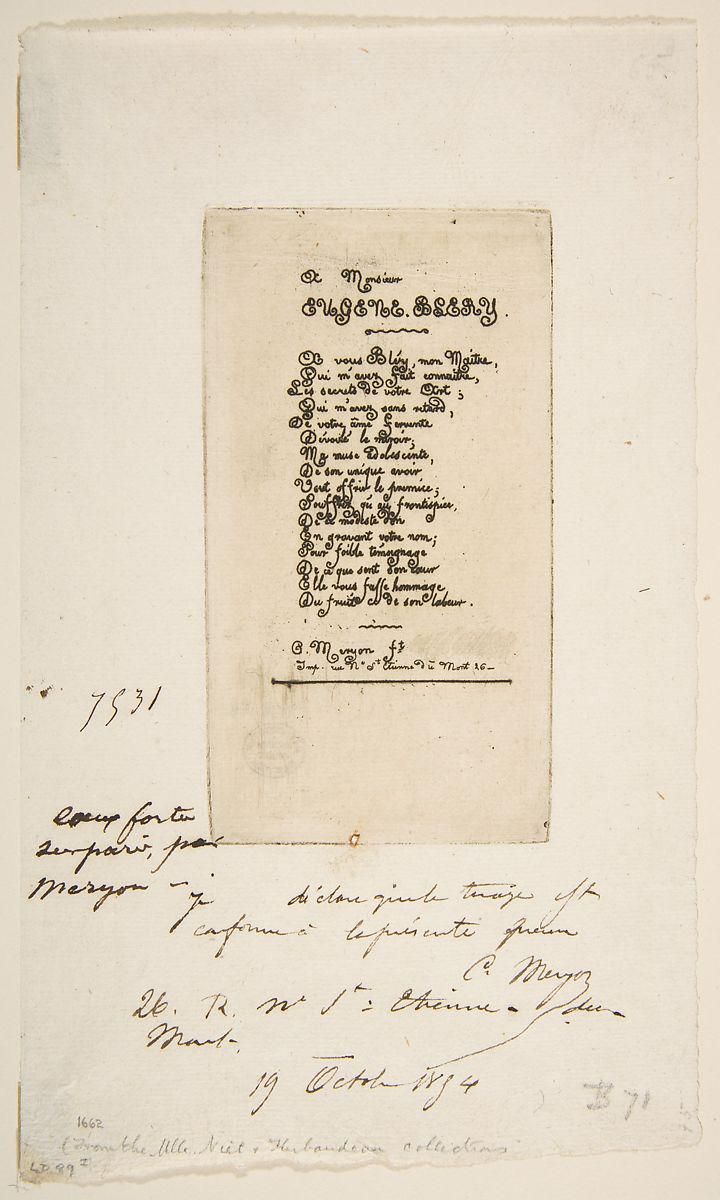 A Monsieur
EUGENE. BLERY.
A vous Bléry, mon Maître,
Qui m'avez fait connaître,
Les secrets de votre Art;
Qui m'avez sans retard,
De votre âme fervente
Dévoilé le miroir;
Ma muse adolescente,
De son unique avoir
Veut offrir le premice;
Souffrez qu'au frontispice,
De ce modeste don
En gravant votre nom;
Pour foible témoignage
De ce que sent son cœur
Elle vous fasse hommage
Du fruit de son labeur.
C. Meryon ft
Imp. rue Ne St Etienne du Mont 26-
7531
eaux fortes
sur paris, par
meryon -
je déclare que le tirage est
conforme à la présente épreuve
C. Meryon
26. R. Ne St: Etienne - du -
Mont.
19 Octobre 1854
B 71
1662
(From the Mlle. Niel & Thibaudeau collections
LD 89 I